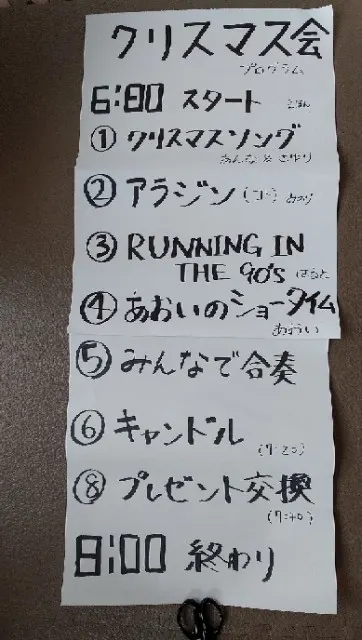 クリスマス会
プログラム
6:00 スタート ごはん
① クリスマスソング
あんな & さゆり
② アラジン
③ RUNNING IN
THE 90's はると
④ あおいのショータイム
あおい
⑤ みんなで合奏
⑥ キャンドル
(7:20)
⑧ プレゼント交換
(7:40)
8:00 終わり